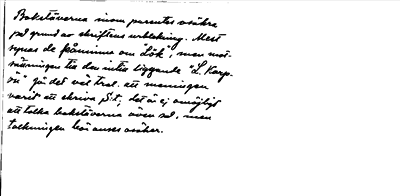 Bokstäverna inom parentes osäkra
på grund av skriftens urblekning. Mest
synas de påminna om "Lök", men mot-
sättningen till den intill liggande "L. Karp-
ön" gör det väl trol. att meningen
varit att skriva St; det är ej omöjligt
att tolka bokstäverna även så, men
tolkningen bör anses osäker.